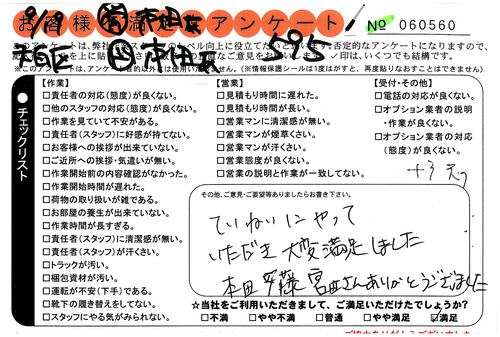 9/19
お客様満足アンケート
No 060560
このアンケートは、弊社
否定的なアンケートになりますので、
※このアンケートは、アンケート目的以外には使用いたしません。(※情報保護シールは1度はがすと、再度貼りなおすことはできません)
チェックリスト
【作業】
□責任者の対応(態度)が良くない。
□他のスタッフの対応(態度)が良くない。
□作業を見ていて不安がある。
□責任者(スタッフ)に好感が持てない。
□お客様への挨拶が出来ていない。
□ご近所への挨拶・気遣いが無い。
□作業開始前の内容確認がなかった。
□作業開始時間が遅れた。
□荷物の取り扱いが雑である。
□お部屋の養生が出来ていない。
□作業時間が長すぎる。
□責任者(スタッフ)に清潔感が無い。
□責任者(スタッフ)が汗くさい。
□トラックが汚い。
□梱包資材が汚い。
□運転が不安(下手)である。
□靴下の履き替えをしてない。
□スタッフにやる気がみられない。
【営業】
□見積もり時間に遅れた。
□見積もり時間が長い。
□営業マンに清潔感が無い。
□営業マンが煙草くさい。
□営業マンが汗くさい。
□営業態度が良くない。
□営業の説明と作業が一致してない。
【受付・その他】
□電話の対応が良くない。
□オプション業者の説明
・作業が良くない。
□オプション業者の対応
(態度)が良くない。
その他、ご意見・ご要望等ありましたらお書き下さい。
ていねいにやって
いただき大変満足しました
本田 齋藤 宮田さんありがとうございました
☆当社をご利用いただきまして、ご満足いただけたでしょうか?
□不満 □やや不満 □普通 □やや満足 ☑満足